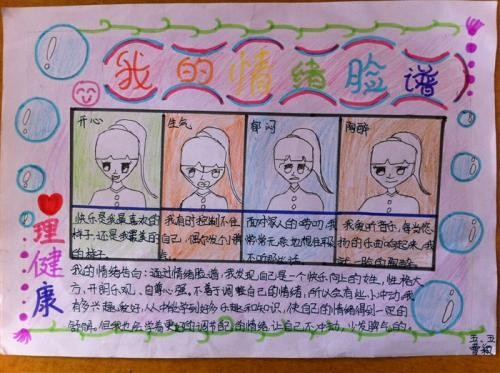 我的情绪脸谱
心理健康
开心
生气
郁闷
陶醉
快乐是我最喜欢的
样子,还是我最美的
的样子。
我有时控制不住
自己,偶尔发个脾
面对家人的唠叨,我
常常无奈地捂住耳
我爱听音乐,每当悠
扬的乐曲响起来,我
就一脸的陶醉
我的情绪告白:通过情绪脸谱,我发现自己是一个快乐向上的女生,性格大
方,开朗乐观,自尊心强。不善于调整自己的情绪,所以会有些小冲动。我
有多兴趣爱好,从中能学到好多乐趣和知识,使自己的情绪得到一定的
舒畅。但我也会学着更好的调节自己的情绪,让自己不冲动,少发脾气的。
五.五